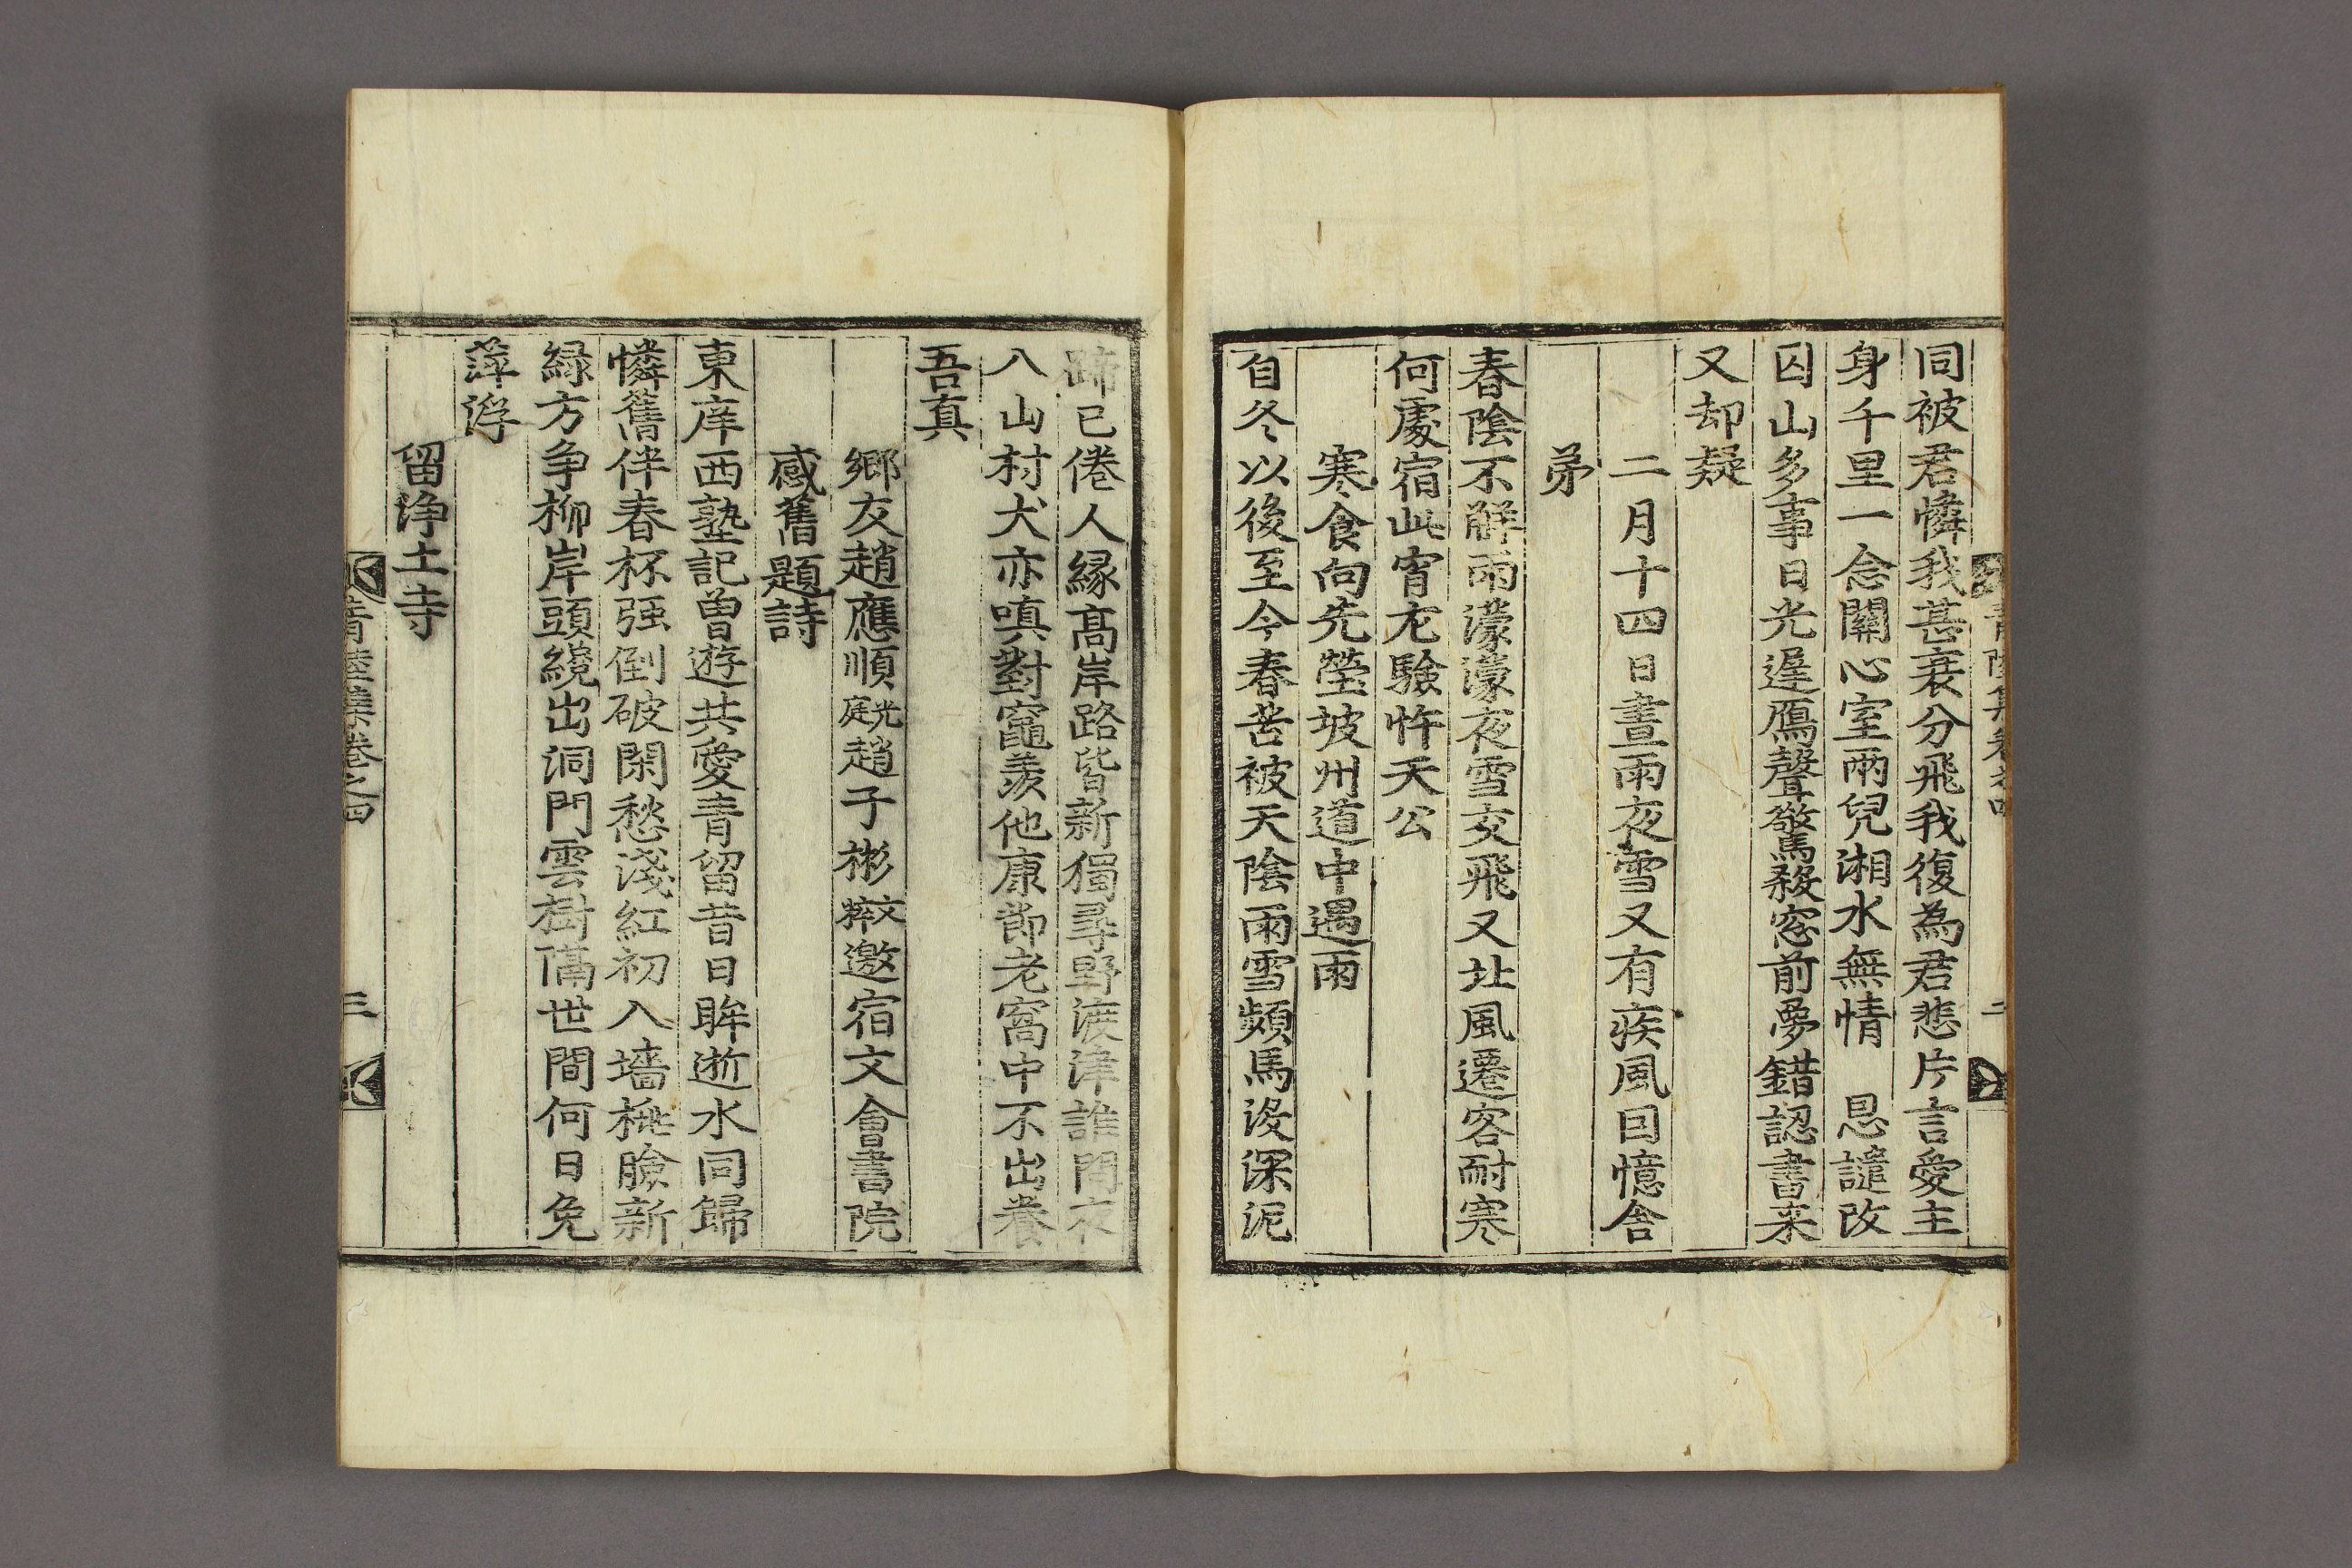 同被君憐我甚衰分飛我復為君悲片言愛主
身千里一念關心室兩兒湘水無情 恩譴改
囚山多事日光遲鴈聲驚殺窓前夢錯認書来
又却疑
二月十四日晝雨夜雪又有疾風因憶舍
弟
春陰不解雨濛濛夜雪交飛又北風遷客耐寒
何處宿此宵尤驗忤天公
寒食向先塋坡州道中遇雨
自冬以後至今春苦被天陰雨雪頻馬沒深泥
青陸集卷之四
二
蹄已倦人緣高岸路皆新獨尋野渡津誰問夜
入山村犬亦嗔對竈羨他康節老窩中不出養
吾真
鄉友趙應順光庭趙子彬文粹邀宿文會書院
感舊題詩
東庠西塾記曾遊共愛青留昔日眸逝水同歸
憐舊伴春杯强倒破閑愁淺紅初入墻桃臉新
綠方争柳岸頭纔出洞門雲樹隔世間何日免
萍浮
留淨土寺
青陸集卷之四
三